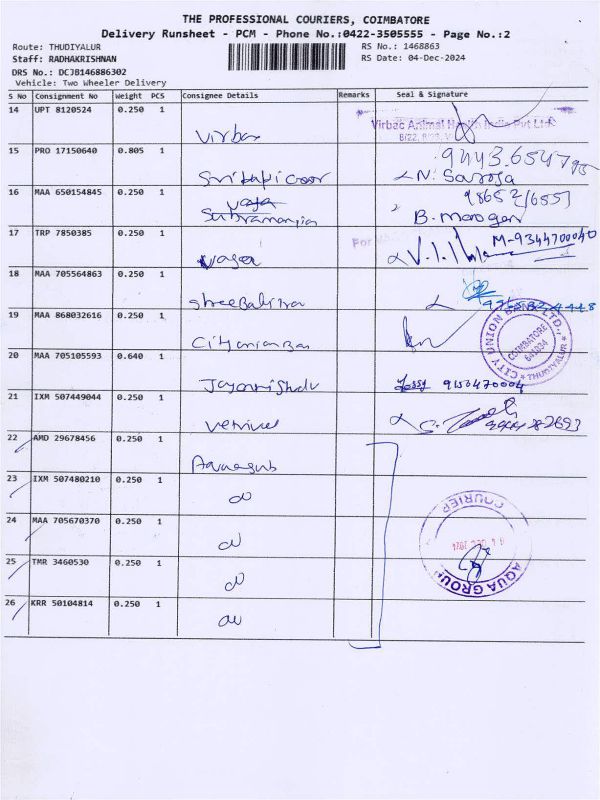 THE PROFESSIONAL COURIERS, COIMBATORE
Delivery Runsheet - PCM - Phone No.:0422-3505555 - Page No.:2
Route: THUDIYALUR
RS No.: 1468863
Staff: RADHAKRISHNAN
RS Date: 04-Dec-2024
DRS No.: DCJB146886302
Vehicle: Two Wheeler Delivery
S No Consignment No Weight PCS Consignee Details Remarks Seal & Signature
14 UPT 8120524 0.250 1
Virbac Animal Health India Pvt Ltd
15 PRO 17150640 0.805 1
N. Saroja
16 MAA 650154845 0.250 1
Subramanian
B. Moogan
17 TRP 7850385 0.250 1
M-9344700040
18 MAA 705564863 0.250 1
19 MAA 868032616 0.250 1
CITY UNION BANK LTD., THUDIYALUR
COIMBATORE
641034
20 MAA 705105593 0.640 1
21 IXM 507449044 0.250 1
Vetrivel
22 AMD 29678456 0.250 1
23 IXM 507480210 0.250 1
24 MAA 705670370 0.250 1
25 TMR 3460530 0.250 1
26 KRR 50104814 0.250 1
COURIER
AQUA GROUP